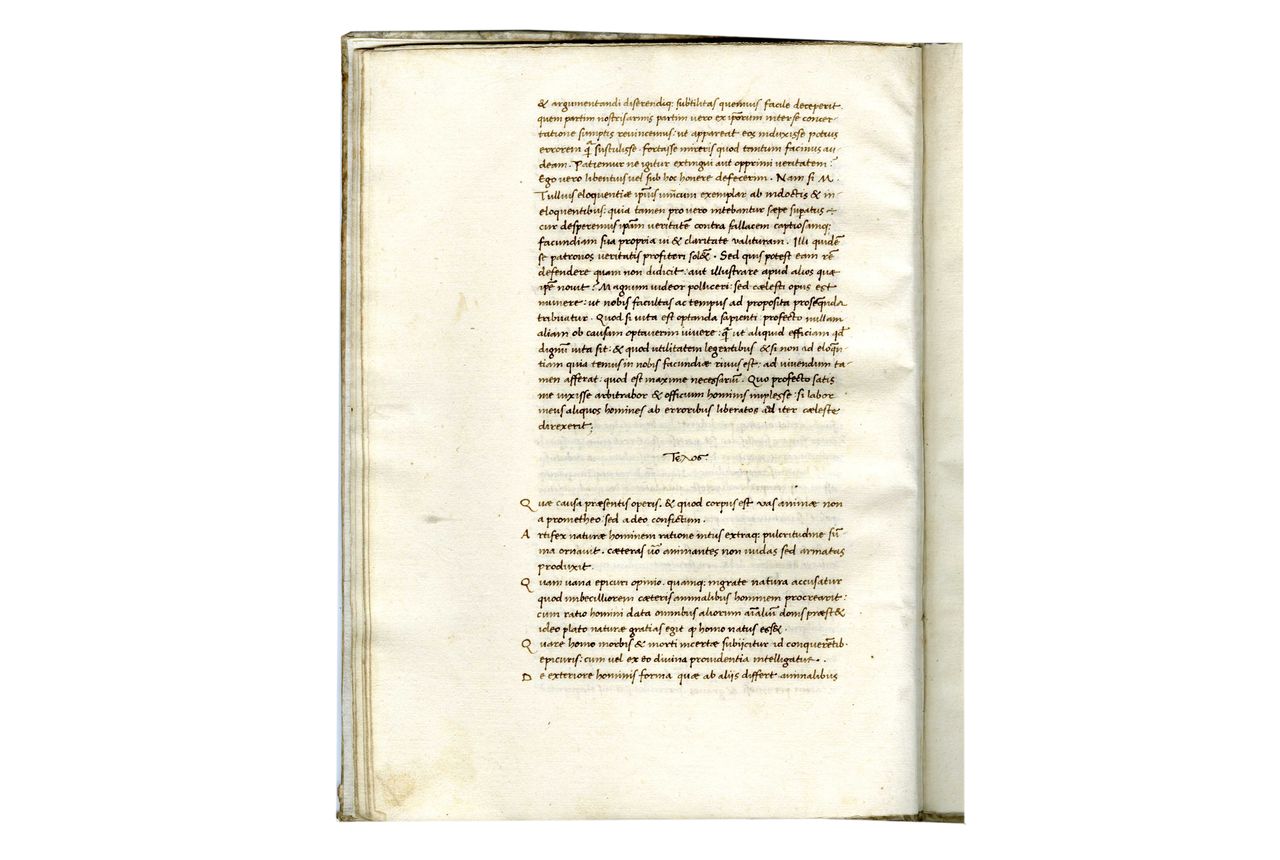 & argumentandi diserendiq; subtilitas quemuis facile deceperit.
quem partim nostris armis partim vero ex ip̄orum inter se concer-
tatione sumptis reuincemus: ut appareat eos induxisse potius
errorem q̄ sustulisse. fortasse mireris quod tantum facinus au-
deam. Patiemur ne igitur extingui aut opprimi veritatem?
Ego vero libentius vel sub hoc honere defecerim. Nam si M.
Tullius eloquentiæ ip̄ius unicum exemplar ab indoctis & in-
eloquentibus: quia tamen pro vero intebantur sæpe supatus ÷
cur desperemus ip̄am veritatē contra fallacem captiosamq;
facundiam sua propria ui & claritate valituram. Illi quidē
se patronos veritatis profiteri sol&. Sed quis potest eam rē
defendere quam non didicit: aut illustrare apud alios quæ
ip̄e nouit? Magnum videor polliceri: sed cælesti opus est
munere: ut nobis facultas ac tempus ad proposita proseq̄nda
tribuatur. Quod si vita est optanda sapienti: profecto nullam
aliam ob causam optauerim vivere: q̄ ut aliquid efficiam qd̄
dignū vita sit: & quod utilitatem legentibus & si non ad eloq̄n
tiam quia tenuis in nobis facundiæ riuus est: ad vivendum ta-
men afferat: quod est maxime necessariū. Quo profecto satis
me uixisse arbitrabor & officium hominis implesse: si labor
meus aliquos homines ab erroribus liberatos ad iter cæleste
direxerit;
Τελος.
Quæ causa præsentis operis. & quod corpus est vas animæ non
a prometheo: sed a deo confictum.
Artifex naturæ hominem ratione intus extraq; pulcritudine sū-
ma ornauit. cæteras ūo animantes non nudas sed armatas
produxit.
Quam uana epicuri opinio. quamq; ingrate natura accusatur
quod imbecilliorem cæteris animalibus hominem procrearit:
cum ratio homini data omnibus aliorum aīaliū donis præst&
ideo plato naturæ gratias egit q homo natus ess&.
Quare homo morbis & morti incertæ subijcitur id conquerētib.
epicuris: cum vel ex eo divina providentia intelligatur.
De exteriore hominis forma quæ ab aliis differt animalibus